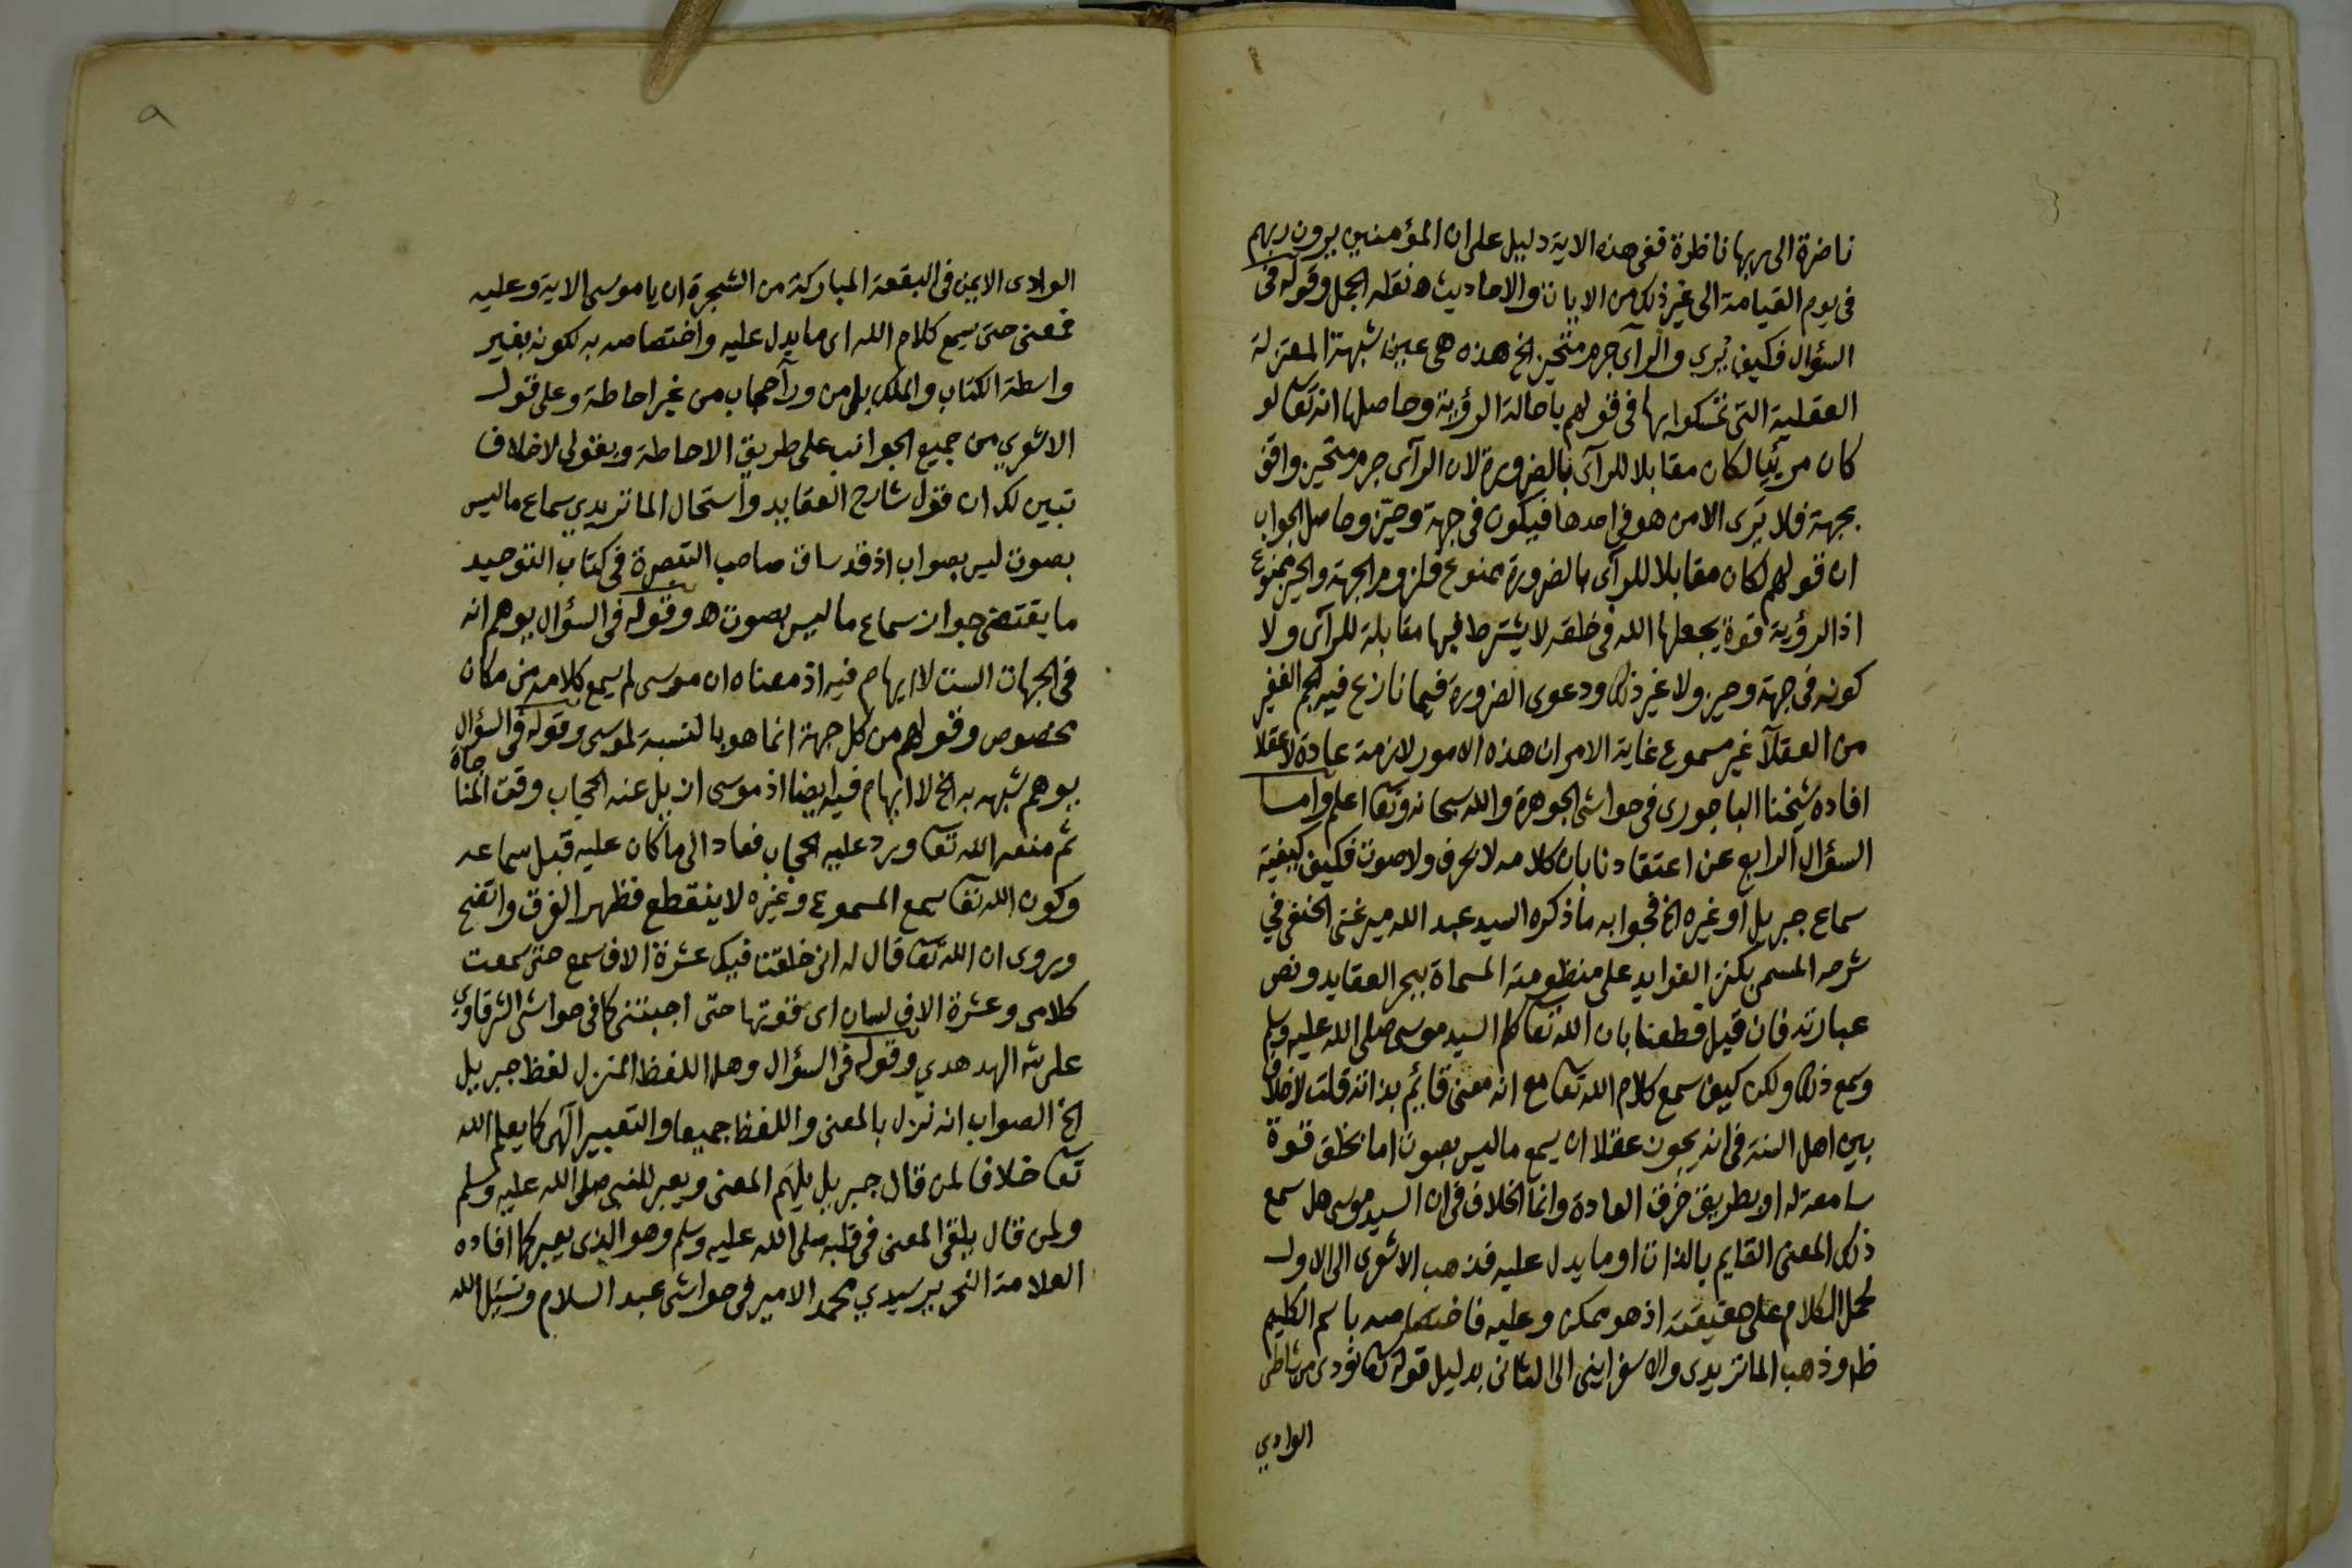 ناضرة الى ربها ناظرة ففى هذه الاية دليل على ان المؤمنين يرون ربهم
فى يوم القيامة الى غير ذلك من الايات والاحاديث ه نقله الجمل وقوله فى
السؤال فكيف يُرى والرآى جرم متحيز الخ هذه هى عين شبهة المعتزلة
العقلية التى تمسكوا بها فى قولهم باحالة الرؤية وحاصلها انه تعا لو
كان مرئيا لكان مقابلا للرآى بالضرورة لان الرآى جرم متحيز واقف
بجهة فلا يَرى الا من هو فى احدها فيكون فى جهة وحيز وحاصل الجواب
ان قولهم لكان مقابلا للرآى بالضرورة ممنوع فلزوم الجهة والحيز ممنوع
اذ الرؤية قوة يجعلها الله فى خلقه لا يشترط فيها مقابلة للرآى ولا
كونه فى جهة وحيز ولا غير ذلك ودعوى الضرورة فيما نازع فيه الجم الغفير
من العقلآ غير مسموع غاية الامر ان هذه الامور لازمة عادة لا عقلا
افاده شيخنا الباجورى فى حواشى الجوهرة والله سبحانه وتعا اعلم واما
السؤال الرابع عن اعتقادنا بان كلامه لا بحرف ولا صوت فكيف كيفية
سماع جبريل او غيره الخ فجوابه ما ذكره السيد عبد الله ميرغنى الحنفى في
شرحه المسمى بكنز الفوايد على منظومته المسماة ببحر العقايد ونص
عبارته فان قيل قطعنا بان الله تعا كلم السيد موسى صلى الله عليه وسلم
وسمع ذلك ولكن كيف سمع كلام الله تعا مع انه معنى قائم بذاته قلت لا خلاف
بين اهل السنة فى انه يجوز عقلا ان يسمع ما ليس بصوت اما بخلق قوة
سامعة له او بطريق خرق العادة وانما الخلاف فى ان السيد موسى هل سمع
ذلك المعنى القايم بالذات او ما يدل عليه فذهب الاشعرى الى الاول
لحمل الكلام على حقيقته اذ هو ممكن وعليه فاختصاصه باسم الكليم
ظ وذهب الماتريدى والاسفراينى الى الثانى بدليل قوله تعا نودى من شاطئ
الوادي
الوادى الايمن فى البقعة المباركة من الشجرة ان يا موسى الاية وعليه
فمعنى حتى يسمع كلام الله اى ما يدل عليه واختصاصه به لكونه بغير
واسطة الكتاب والملك بل من ورآ حجاب من غير احاطة وعلى قول
الاشعري من جميع الجوانب على طريق الاحاطة وبقولى لا خلاف
تبين لك ان قول شارح العقايد واستحال الماتريدي سماع ما ليس
بصوت ليس بصواب اذ قد ساق صاحب التبصرة فى كتاب التوحيد
ما يقتضى جواز سماع ما ليس بصوت ه وقوله فى السؤال يوهم انه
فى الجهات الست لا ايهام فيه اذ معناه ان موسى لم يسمع كلامه من مكان
مخصوص وقولهم من كل جهة انما هو بالنسبة لموسى وقوله فى السؤال
يوهم شبهه به الخ لا ايهام فيه ايضا اذ موسى ازيل عنه الحجاب وقت المناجاة
ثم منعه الله تعا ويرد عليه الحجاب فعاد الى ما كان عليه قبل سماعه
وكون الله تعا يسمع المسموع وغيره لا ينقطع فظهر الفرق واتضح
ويروى ان الله تعا قال له انى خلقتنا فيك عشرة الاف سمع حتى سمعت
كلامى وعشرة الاف لسان اى قوتها حتى اجبتنى كما فى حواشى الشرقاوي
على شه الهدهدي وقوله فى السؤال وهل اللفظ المنزل لفظ جبريل
الخ الصواب انه نزل بالمعنى واللفظ جميعا والتعبير الٓهى كما يعلم الله
تعا خلافا لمن قال جبريل يلهَم المعنى ويعبر للنبى صلى الله عليه وسلم
ولمن قال يلقى المعنى فى قلبه صلى الله عليه وسلم وهو الذى يعبر كما افاده
العلامة النحرير سيدي محمد الامير فى حواشى عبد السلام ونسئل الله